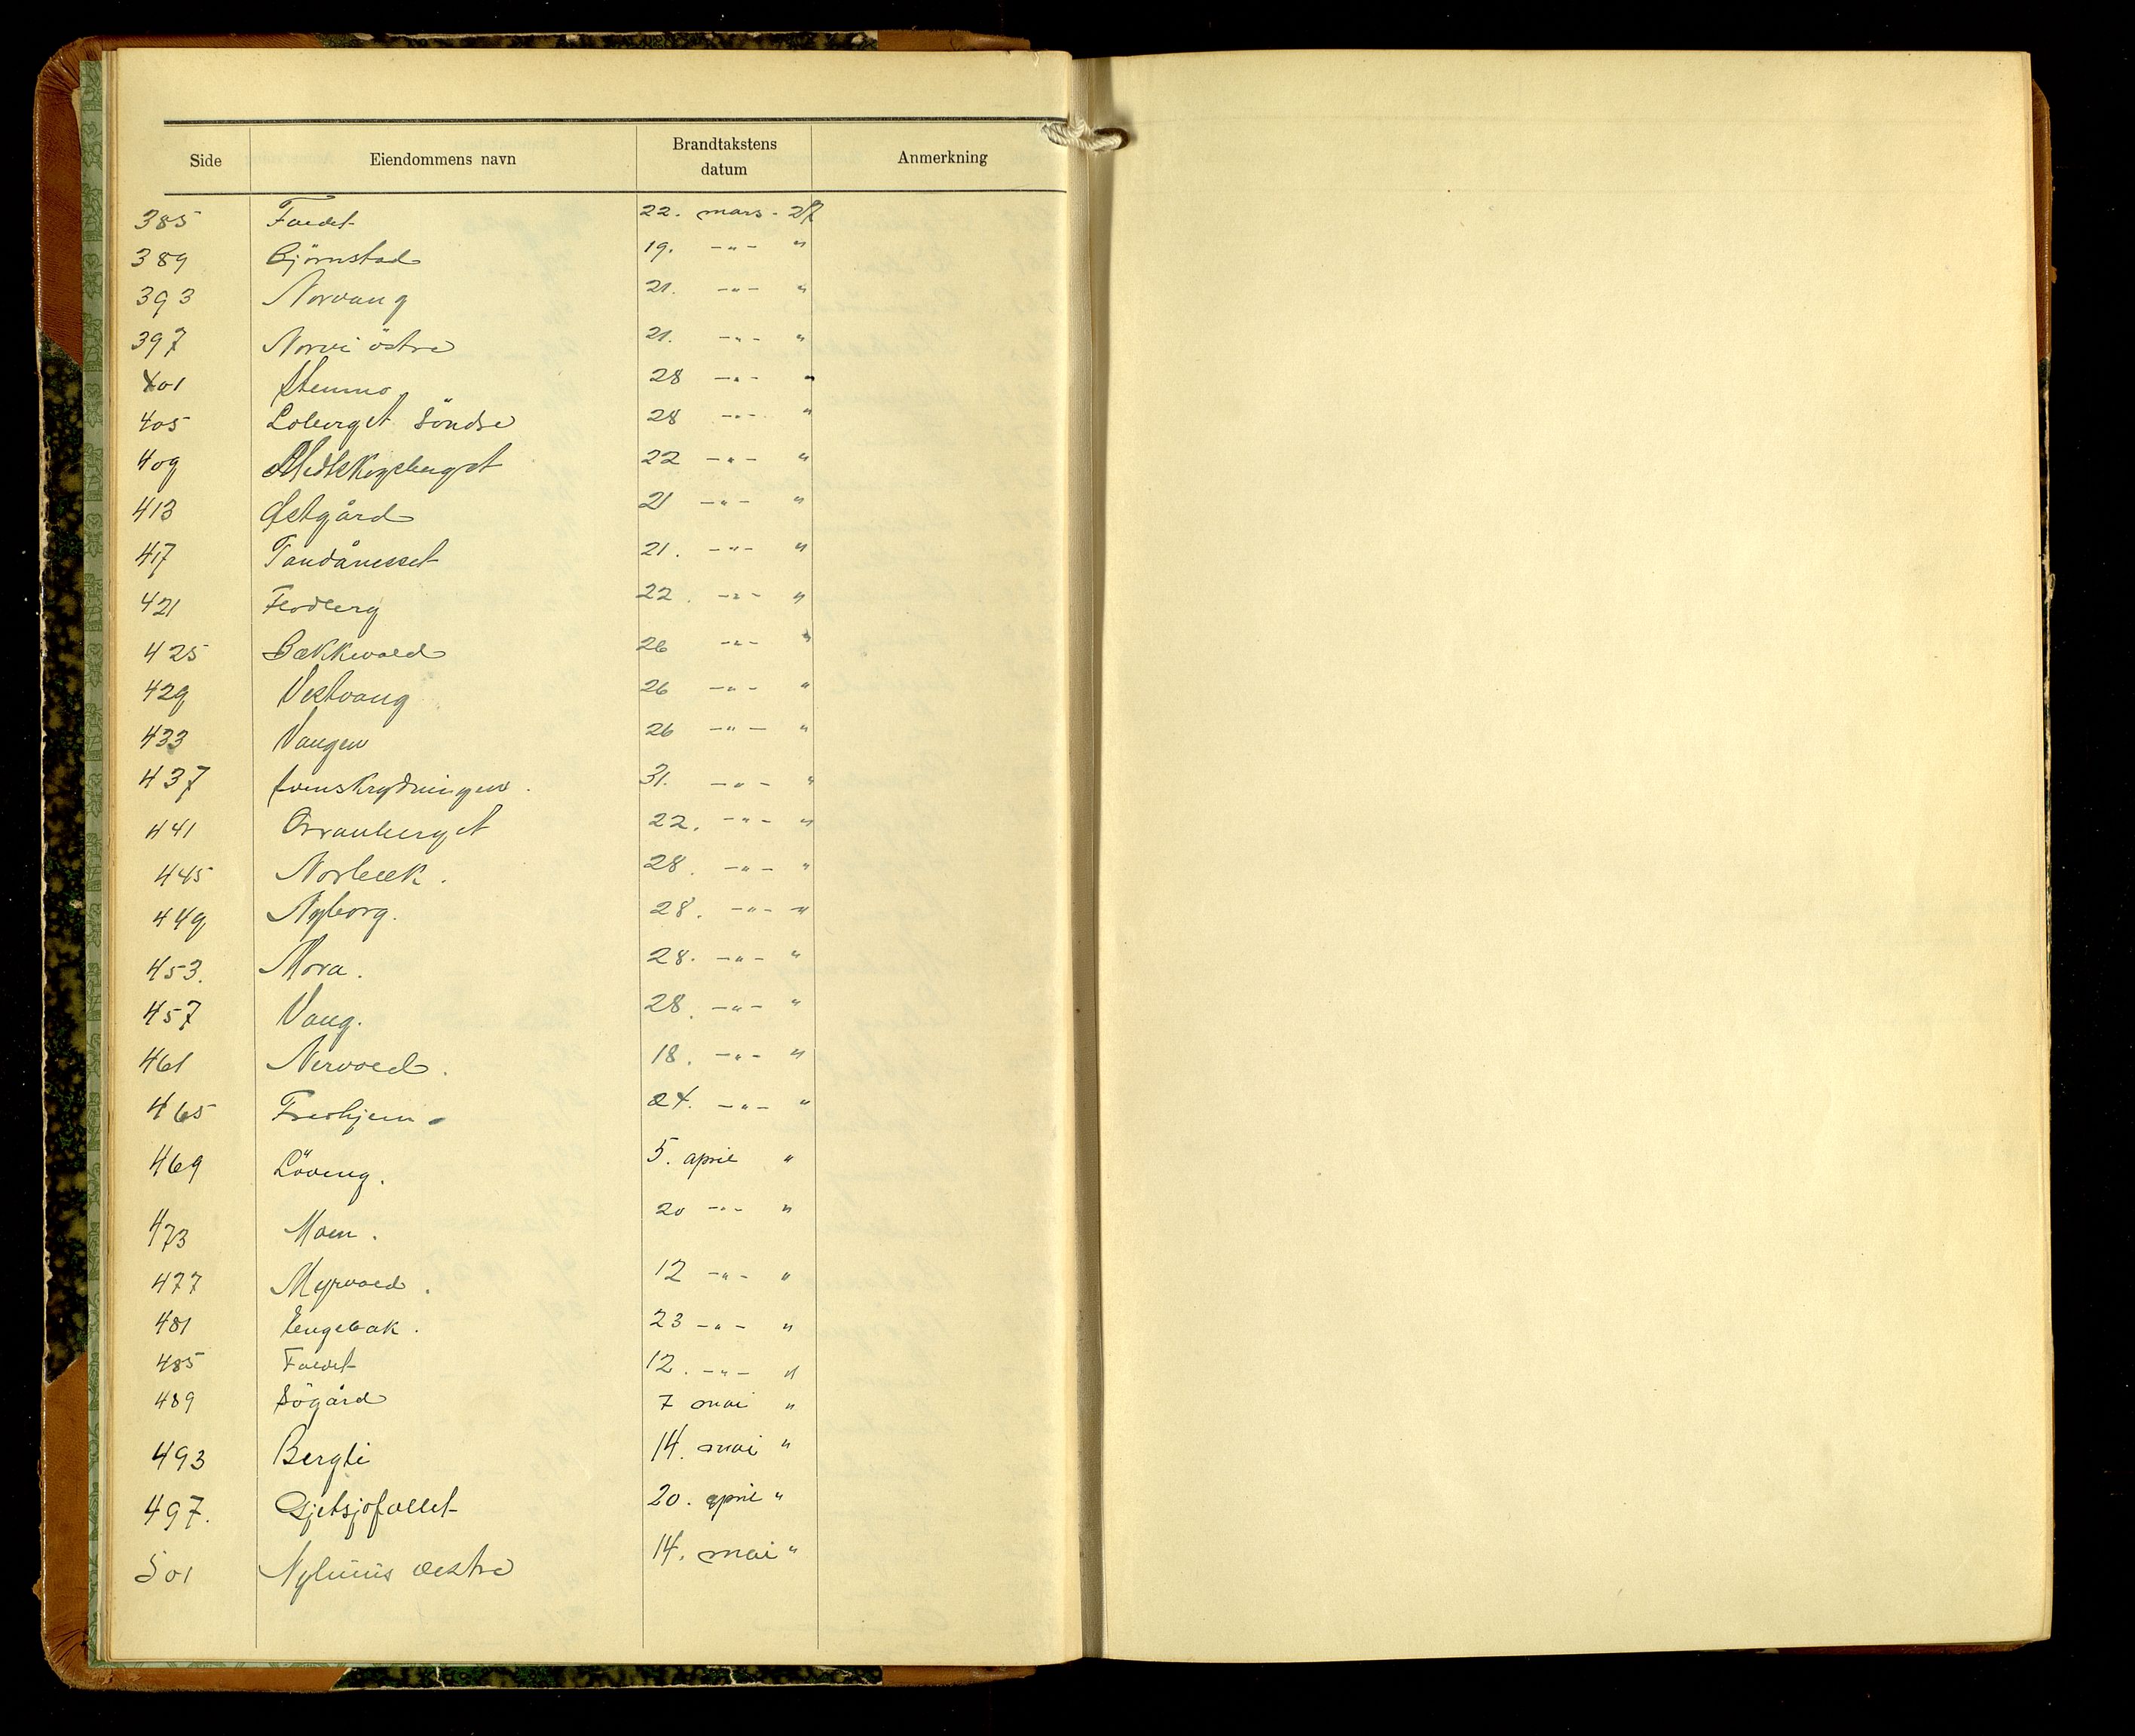 Side Eiendommens navn Brandtakstens datum Anmerkning
385 Faldet 22. mars - 27
389 Björnstad 19. -"- "
393 Norvang 21. -"- "
397 Norvi östre 21. -"- "
401 Stenmo 28 -"- "
405 Loberget Söndre 28 -"- "
409 Medskogsberget 22 -"- "
413 Østgård 21 -"- "
417 Tandånesset 21. -"- "
421 Flodberg 22. -"- "
425 Bækkevold 26 -"- "
429 Vestvang 26 -"- "
433 Vangen 26 -"- "
437 Svenskrydningen. 31. -"- "
441 Orranberget 22. -"- "
445 Norbæk. 28. -"- "
449 Nyborg. 28. -"- "
453. Mora. 28. -"- "
457 Vang. 28. -"- "
461 Nervold. 18. -"- "
465 Fredhjem. 24. -"- "
469 Löveng. 5. april "
473 Moen. 20 -"- "
477 Myrvold. 12 -"- "
481 Engebak. 23 -"- "
485 Faldet 12. -"- "
489 Sögård 7 mai "
493 Bergli 14. mai "
497. Gjetsjøfallet 20. april "
501 Nylinüs 14. mai "